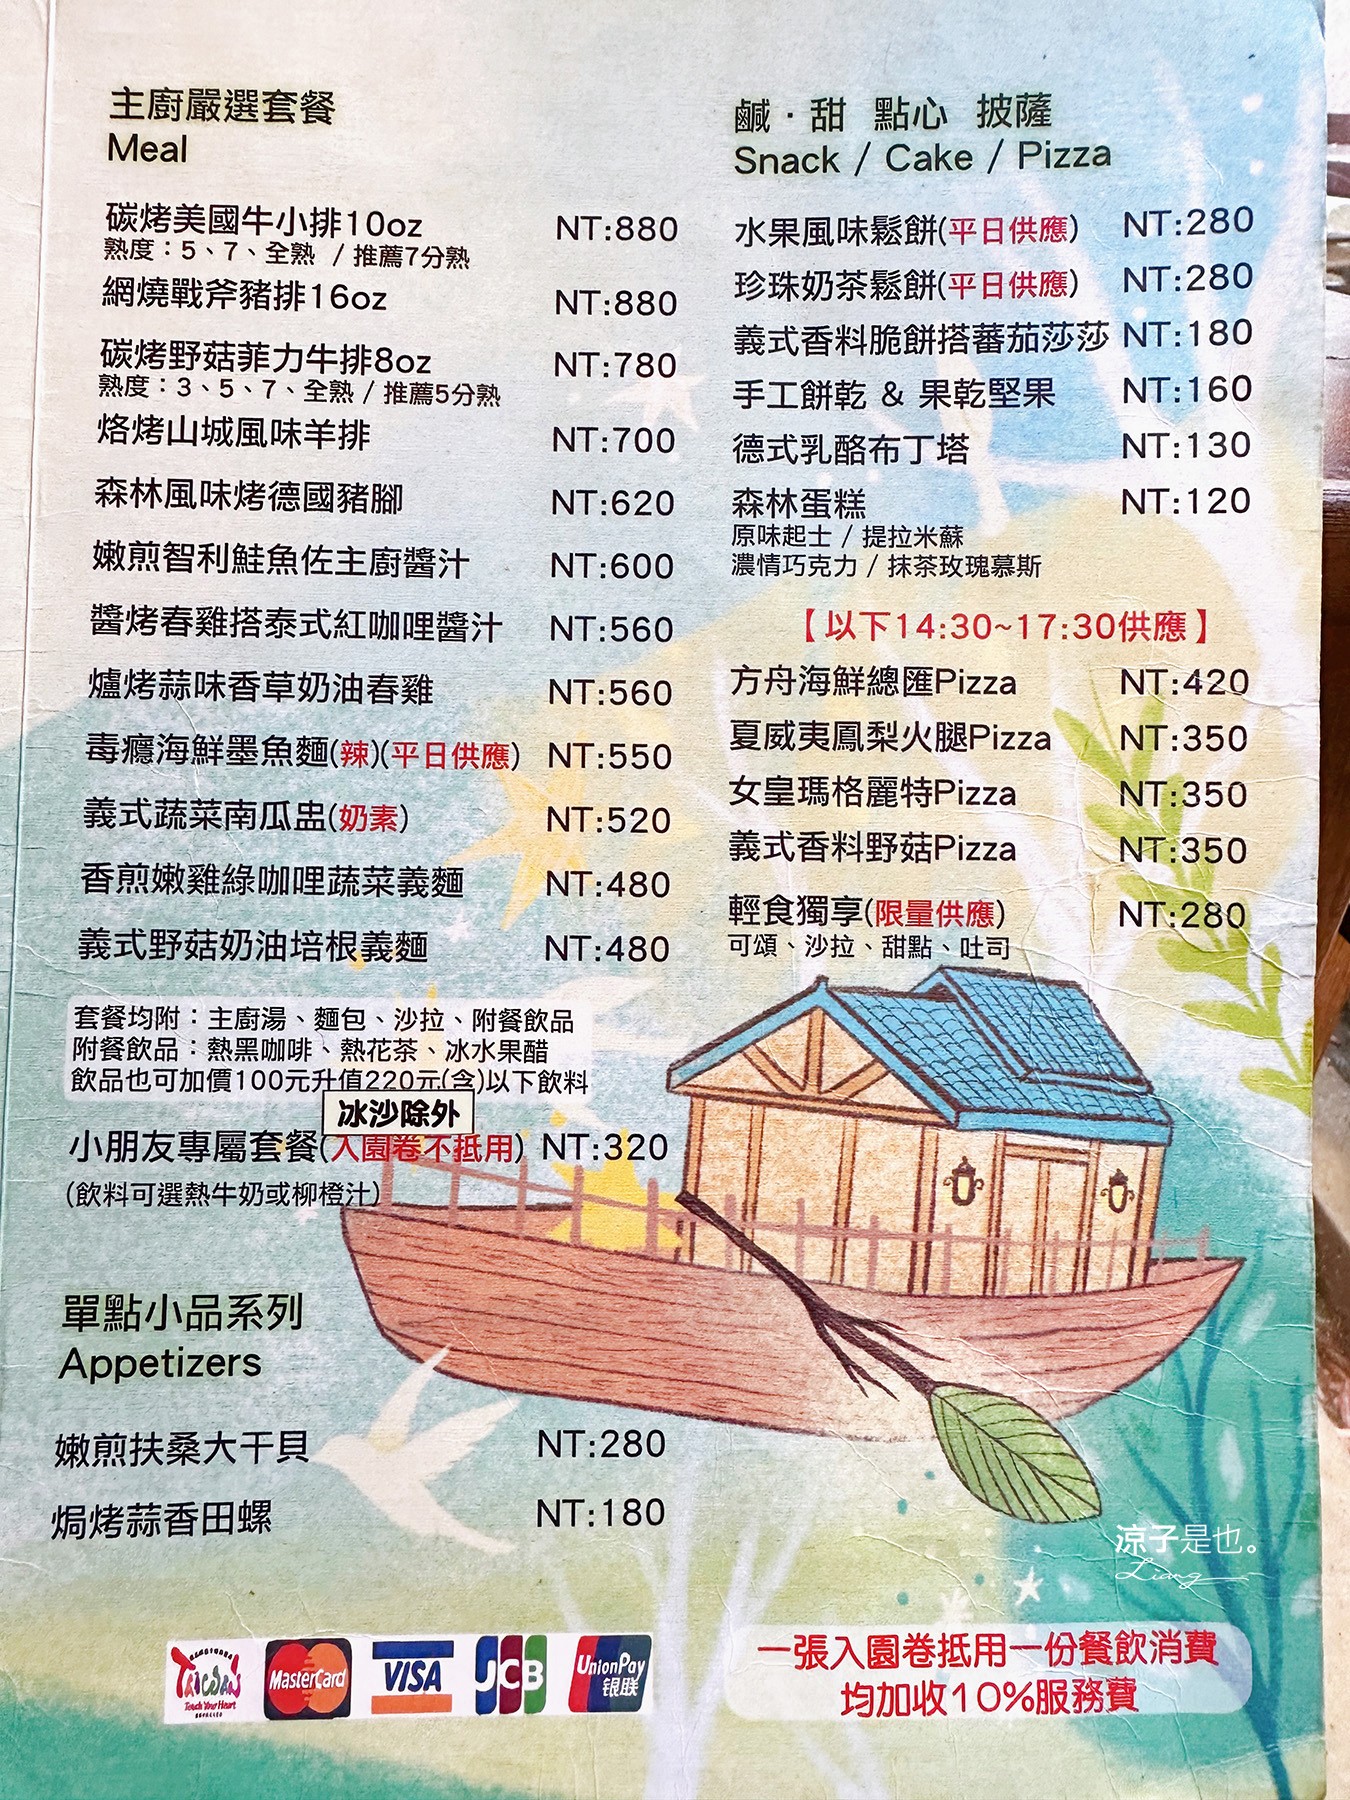 主廚嚴選套餐
Meal
碳烤美國牛小排10oz NT:880
熟度：5、7、全熟 / 推薦7分熟
網燒戰斧豬排16oz NT:880
碳烤野菇菲力牛排8oz NT:780
熟度：3、5、7、全熟 / 推薦5分熟
烙烤山城風味羊排 NT:700
森林風味烤德國豬腳 NT:620
嫩煎智利鮭魚佐主廚醬汁 NT:600
醬烤春雞搭泰式紅咖哩醬汁 NT:560
爐烤蒜味香草奶油春雞 NT:560
毒癮海鮮墨魚麵(辣)(平日供應) NT:550
義式蔬菜南瓜盅(奶素) NT:520
香煎嫩雞綠咖哩蔬菜義麵 NT:480
義式野菇奶油培根義麵 NT:480
套餐均附：主廚湯、麵包、沙拉、附餐飲品
附餐飲品：熱黑咖啡、熱花茶、冰水果醋
飲品也可加價100元升值220元(含)以下飲料
冰沙除外
小朋友專屬套餐(入園卷不抵用) NT:320
(飲料可選熱牛奶或柳橙汁)
單點小品系列
Appetizers
嫩煎扶桑大干貝 NT:280
焗烤蒜香田螺 NT:180
鹹·甜 點心 披薩
Snack / Cake / Pizza
水果風味鬆餅(平日供應) NT:280
珍珠奶茶鬆餅(平日供應) NT:280
義式香料脆餅搭蕃茄莎莎 NT:180
手工餅乾 & 果乾堅果 NT:160
德式乳酪布丁塔 NT:130
森林蛋糕 NT:120
原味起士 / 提拉米蘇
濃情巧克力 / 抹茶玫瑰慕斯
【以下14:30~17:30供應】
方舟海鮮總匯Pizza NT:420
夏威夷鳳梨火腿Pizza NT:350
女皇瑪格麗特Pizza NT:350
義式香料野菇Pizza NT:350
輕食獨享(限量供應) NT:280
可頌、沙拉、甜點、吐司
涼子是也。
Liang
TAIWAN
Touch Your Heart
MasterCard
VISA
JCB
UnionPay
银联
一張入園卷抵用一份餐飲消費
均加收10%服務費